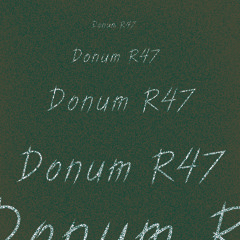 Donum R47
Donum R47
Donum R47
Donum R47
Donum R